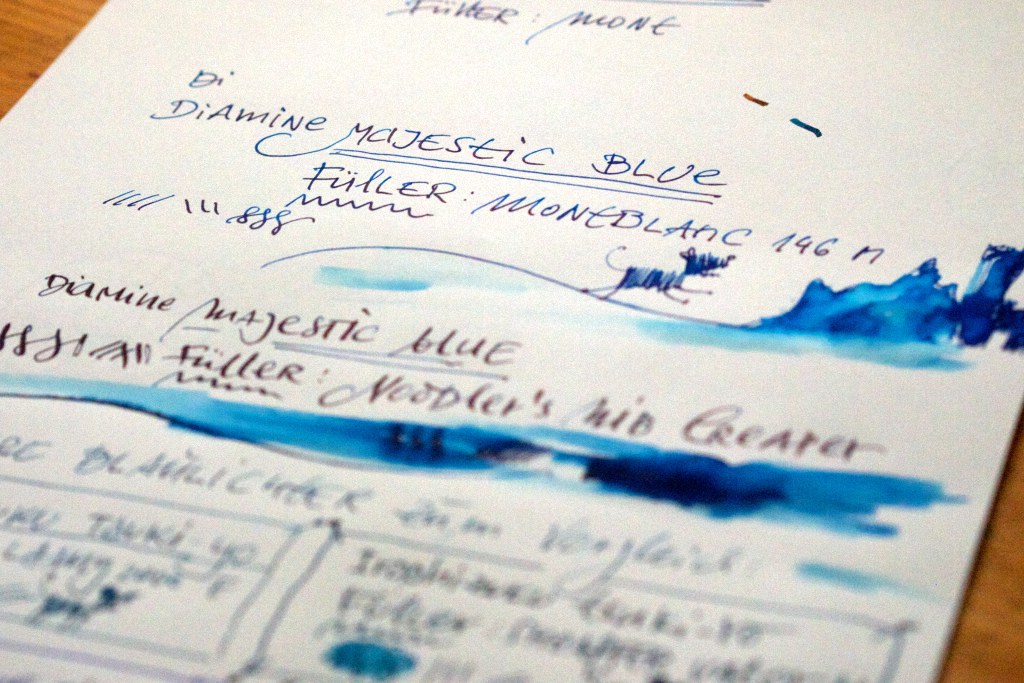 Füller: MONT
Di
DiAMiNE MAJEStiC BLUE
FüllER: MONtBLANC 146 M
DiAMiNE MAJESTIC BLUE
FüllER: Noodler's Nib CREAPER
BLAULICHER zum Vergleich
TSUKi-yo
LAMY
tsuki-yo
FüllER: